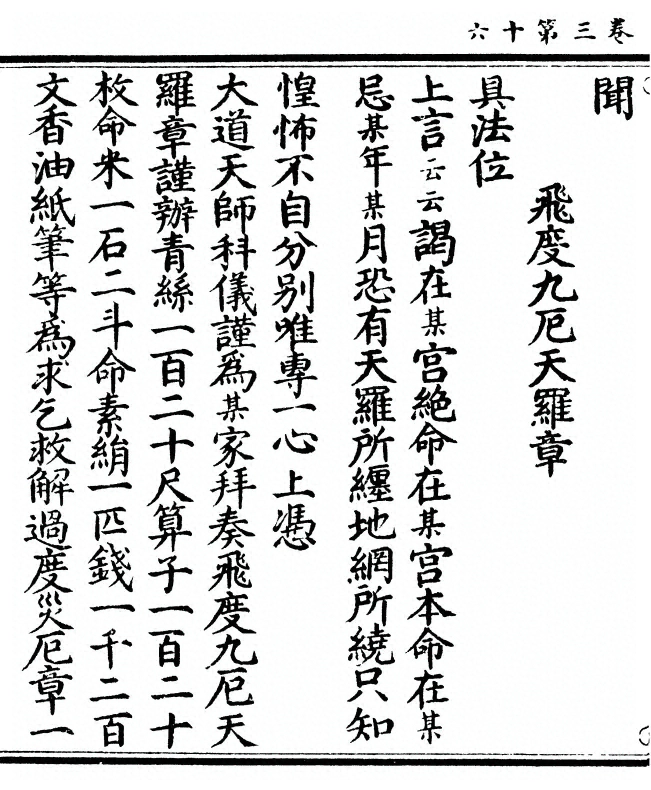 卷三第十六
聞
飛度九厄天羅章
具法位
上言云云謁在某宮絕命在某宮本命在某
忌某年某月恐有天羅所纏地網所繞只知
惶怖不自分别唯專一心上憑
大道天師科儀謹為某家拜奏飛度九厄天
羅章謹辦青絲一百二十尺算子一百二十
枚命米一石二斗命素絹一匹錢一千二百
文香油紙筆等為求乞救解過度災厄章一